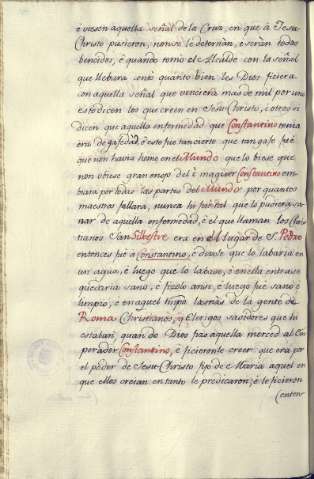 é viesen aquella señal de la Cruz, en que à Jesu
Christo pusieron, non se le deternian, é serian todos
bencidos, é quando tomó el Alcalde con la señal
que llebara conto quanto bien les Dios ficiera
con aquella señal que venciera mas de mil por uno
esto dicen los que creen en Jesu Christo, é otrosi
dicen que aquella enfermedad que Constantino tenia
era de gafedad, é esto fue tan cierto que tan gafo fué
que non havia home en el Mundo que lo viese que
non obiese gran enojo del é maguer Constantino em-
biara por todas las partes del Mundo por quantos
maestros fallara, nunca tu que lo pudiera sa-
nar de aquella enfermedad, é el que llaman los Chris-
tianos San Silbestre era en el lugar de S. Pedro
entonces fué a Constantino, é dixole que lo labaria en
un agua, é luego que lo labase, é en ella entrase
quedaria sano, é ficolo ansi, é luego fué sano é
limpio, é en aquel tiempo las mas de la gente de
Roma Christianos, y Clerigos savidores que hi
estaban quando Dios fizo aquella merced al Em-
perador Constantino, é ficieronle creer que era por
el poder de Jesu Christo fijo de Maria aquel en
que ellos creian en tanto le predicaron, é le ficieron
(enten